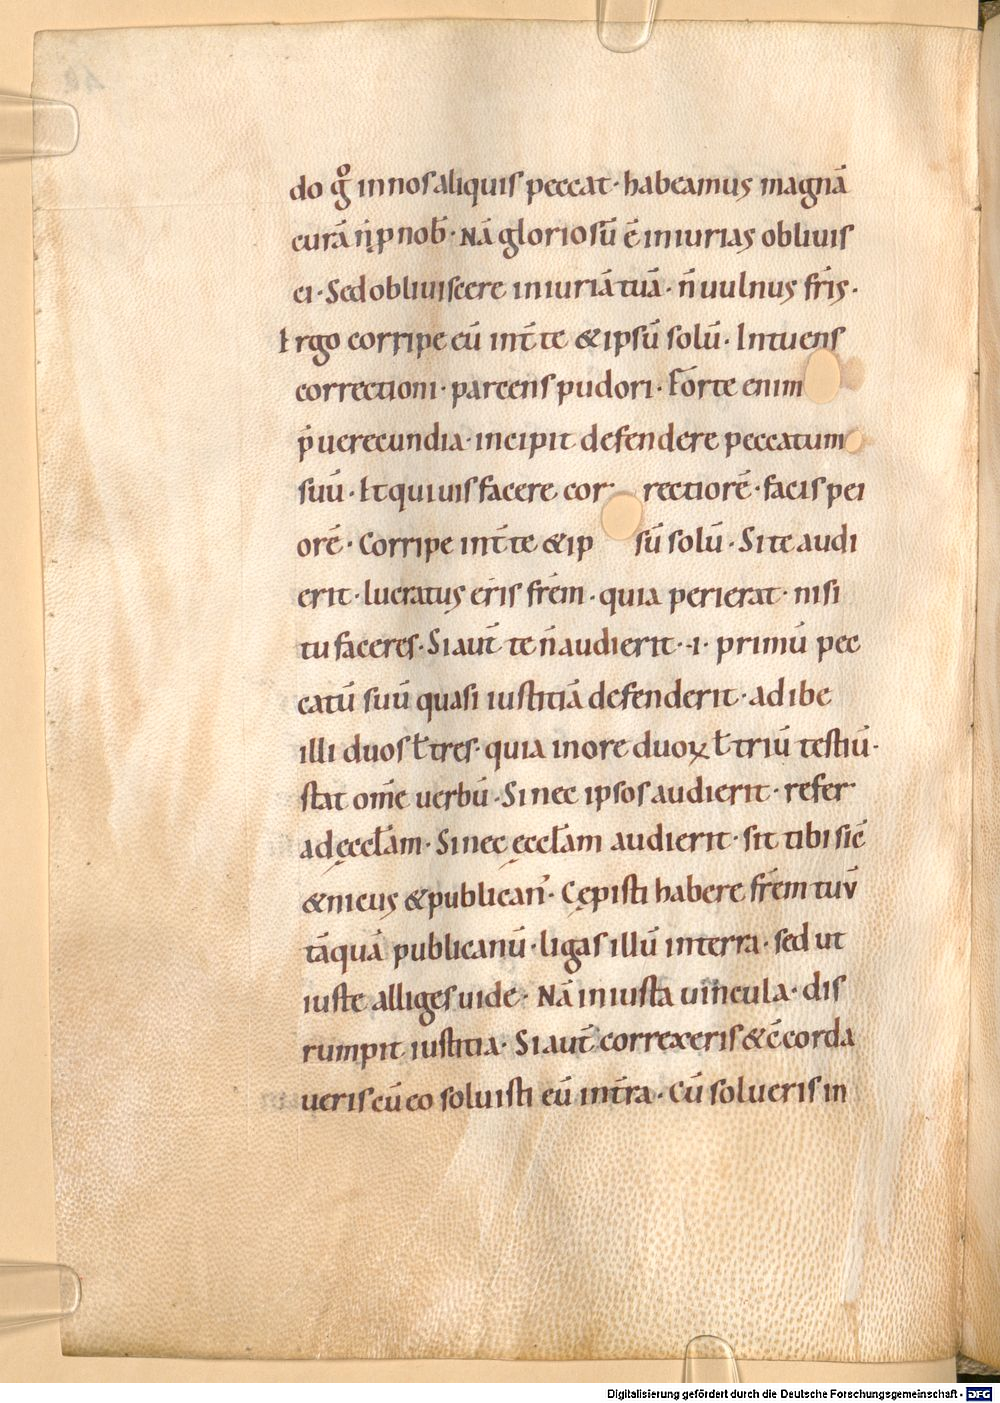 do gͦ in nos aliquis peccat · habeamus magnā
curā n̄ ꝓ nob̄ · Nā gloriosū ē iniurias obliuis
ci · Sed obliuiscere iniuriā tuā · n̄ uulnus fr̄is ·
Ergo corripe eū int̄ te & ipsū solū · Intuens
correctioni · parcens pudori · Forte enim
p̄ uerecundia · incipit defendere peccatum
suū · Et qui uis facere cor rectiorē · facis pei
orē · Corripe int̄ te & ip sū solū · Si te audi
erit · lucratus eris fr̄em · quia perierat · nisi
tu faceres · Si aut̄ te n̄ audierit · ·i· primū pec
catū suū quasi iustitiā defenderit · adibe
illi duos ł tres · quia in ore duoꝝ ł triū testiū ·
stat om̄e uerbū · Si nec ipsos audierit · refer
ad ęccl̄am · Si nec ęccl̄am audierit · sit tibi sic̄
&nicus & publican᾿ · Cępisti habere fr̄em tuū
tāquā publicanū · ligas illū in terra · sed ut
iuste alliges uide · Nā iniusta uincula · dis
rumpit iustitia · Si aut̄ correxeris & c̄corda
ueris cū eo soluisti eū in tr̄a · Cū solueris in
Digitalisierung gefördert durch die Deutsche Forschungsgemeinschaft - DFG